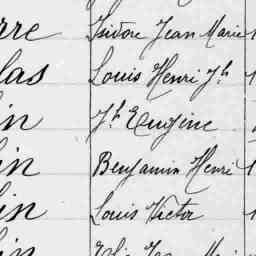 rre Isidore Jean Marie
las Louis Henri Jh
in Jh Eugine
in Benjamin Henri
in Louis Victor
in